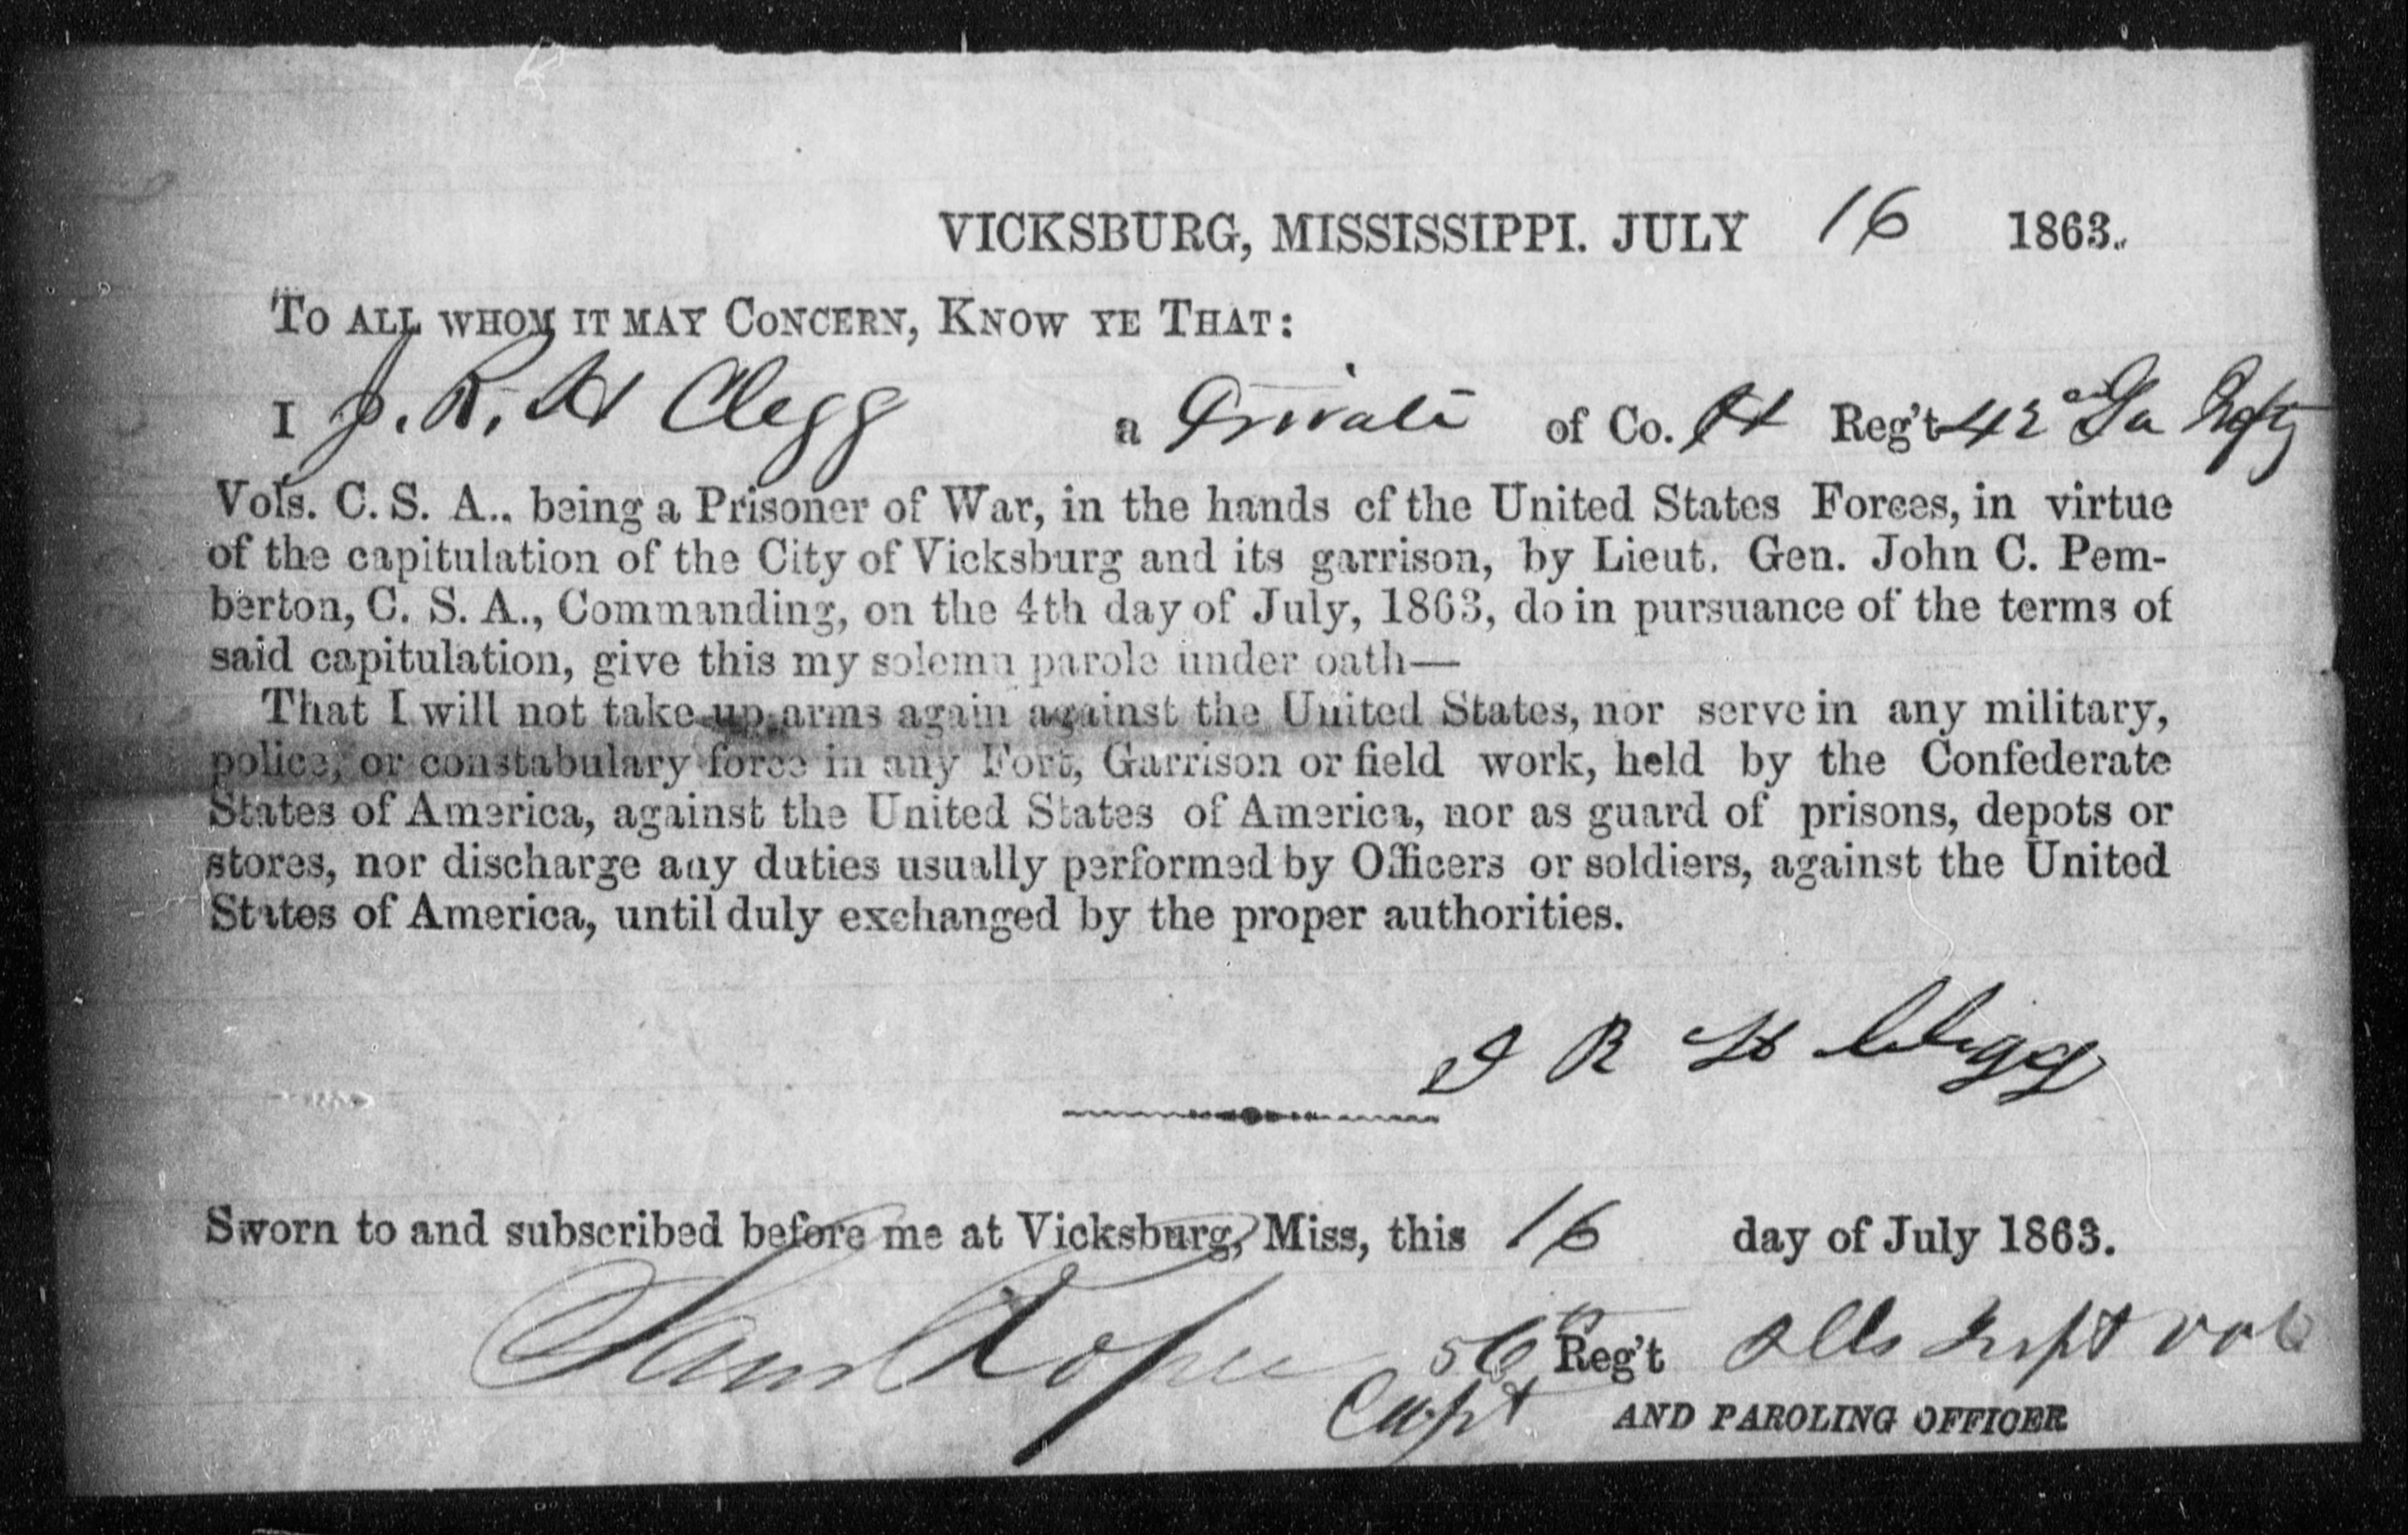 VICKSBURG, MISSISSIPPI. JULY 16 1863.
TO ALL WHOM IT MAY CONCERN, KNOW YE THAT:
I J. R. H Clegg a Private of Co. H Reg't 42 Ga Infty
Vols. C. S. A., being a Prisoner of War, in the hands of the United States Forces, in virtue
of the capitulation of the City of Vicksburg and its garrison, by Lieut. Gen. John C. Pem-
berton, C. S. A., Commanding, on the 4th day of July, 1863, do in pursuance of the terms of
said capitulation, give this my solemn parole under oath—
That I will not take up arms again against the United States, nor serve in any military,
police, or constabulary force in any Fort, Garrison or field work, held by the Confederate
States of America, against the United States of America, nor as guard of prisons, depots or
stores, nor discharge any duties usually performed by Officers or soldiers, against the United
States of America, until duly exchanged by the proper authorities.
J R H Clegg
Sworn to and subscribed before me at Vicksburg, Miss, this 16 day of July 1863.
Sam Roper 56th Reg't Ills Inft Vol
Capt AND PAROLING OFFICER